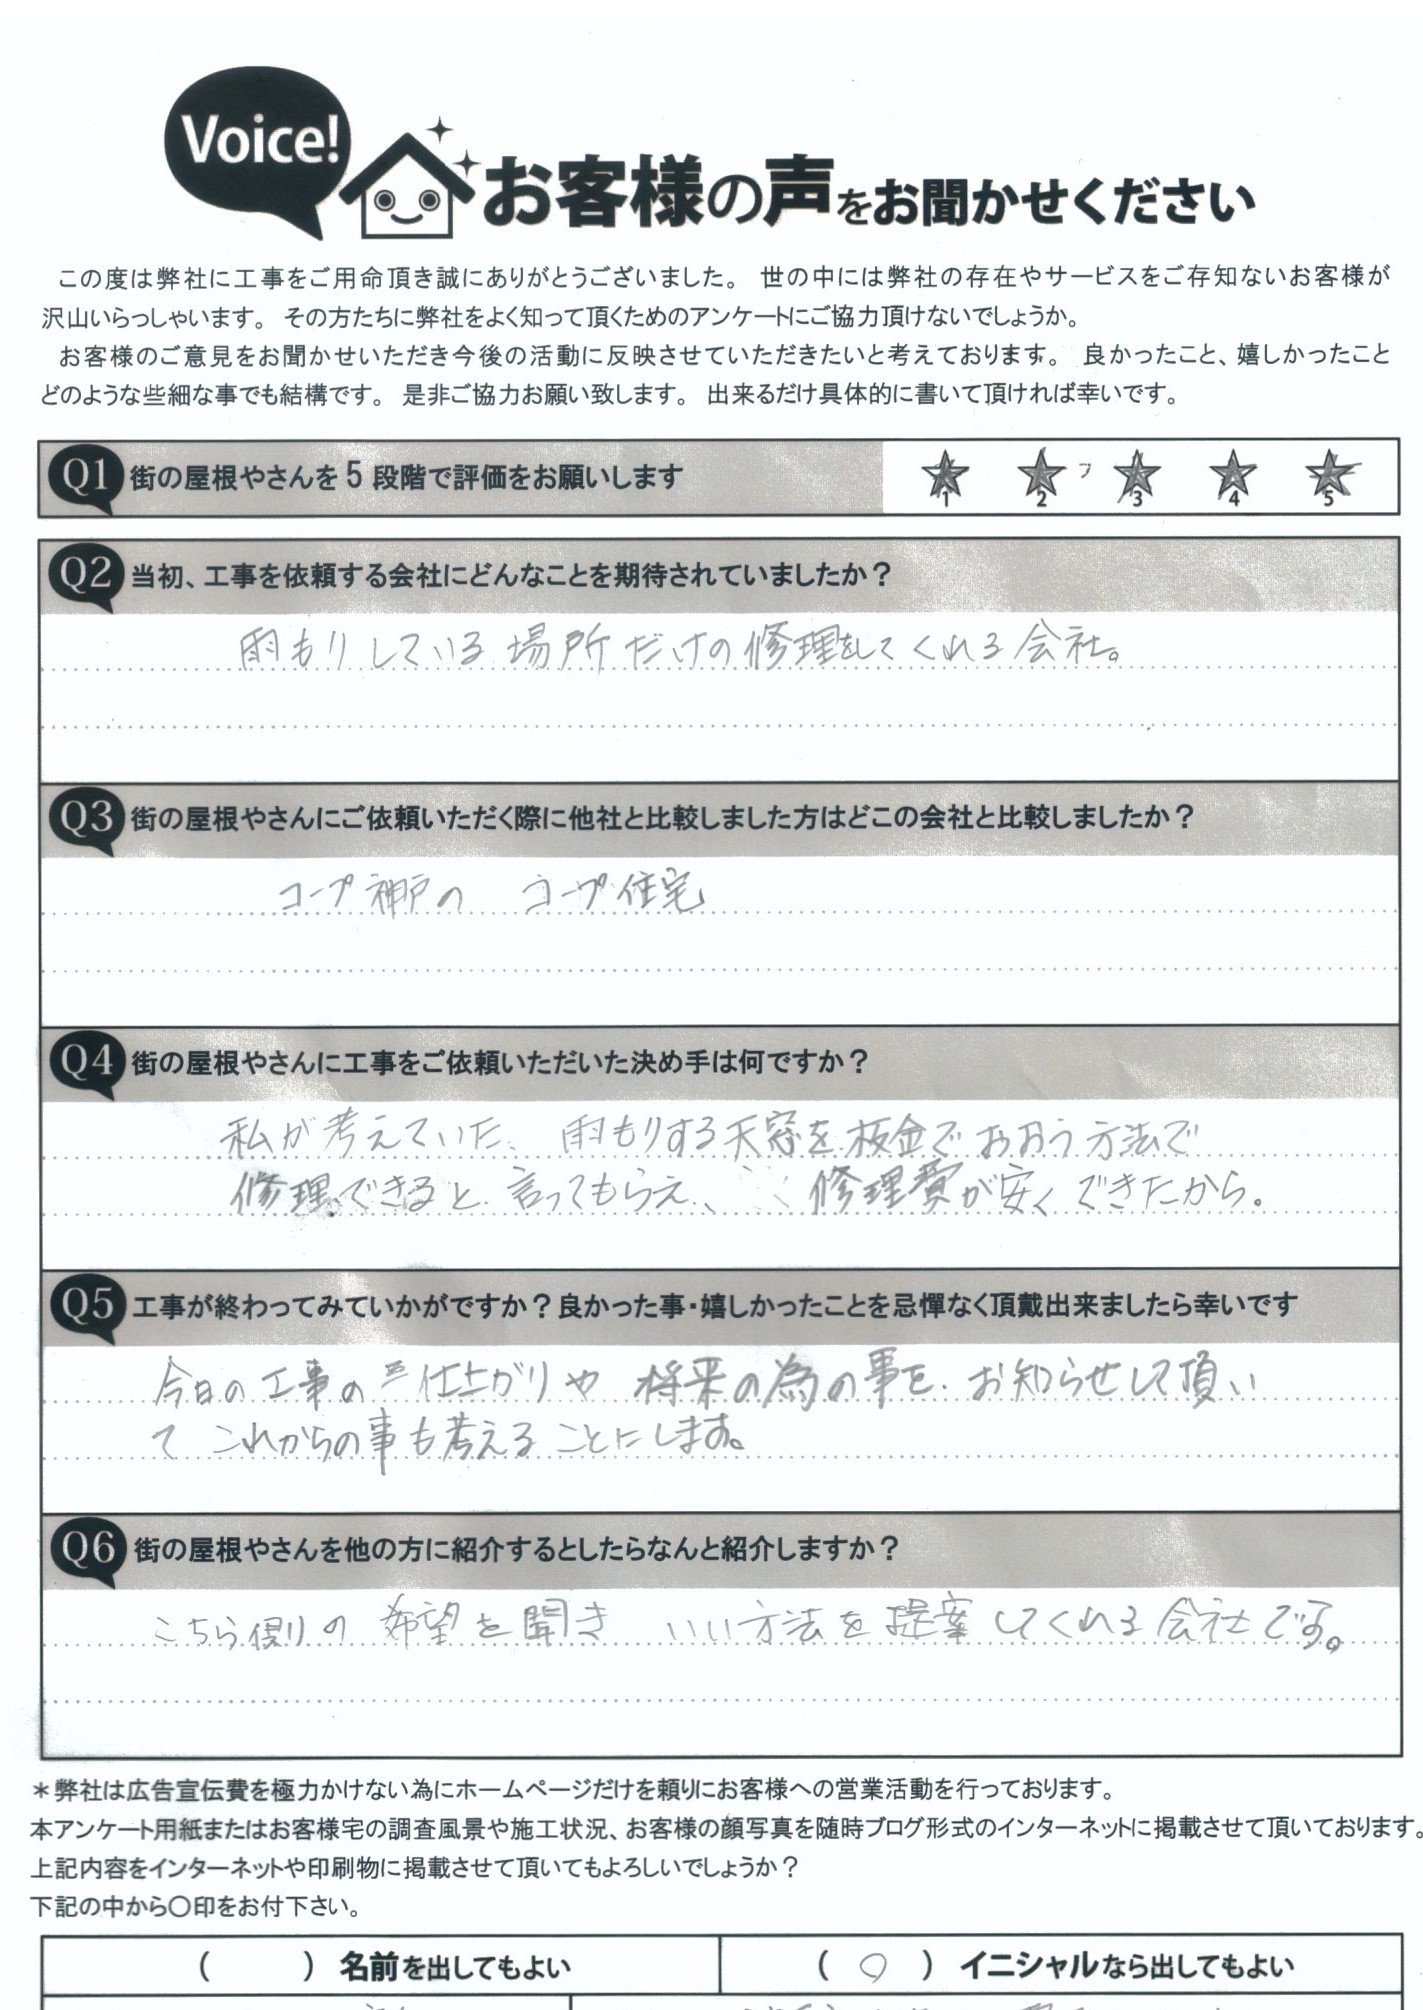 Voice!
お客様の声をお聞かせください
この度は弊社に工事をご用命頂き誠にありがとうございました。 世の中には弊社の存在やサービスをご存知ないお客様が
沢山いらっしゃいます。 その方たちに弊社をよく知って頂くためのアンケートにご協力頂けないでしょうか。
お客様のご意見をお聞かせいただき今後の活動に反映させていただきたいと考えております。 良かったこと、嬉しかったこと
どのような些細な事でも結構です。 是非ご協力お願い致します。 出来るだけ具体的に書いて頂ければ幸いです。
Q1 街の屋根やさんを5段階で評価をお願いします ★1 ★2 ★3 ★4 ★5
Q2 当初、工事を依頼する会社にどんなことを期待されていましたか？
雨もりしている場所だけの修理をしてくれる会社。
Q3 街の屋根やさんにご依頼いただく際に他社と比較しました方はどこの会社と比較しましたか？
コープ神戸の コープ住宅
Q4 街の屋根やさんに工事をご依頼いただいた決め手は何ですか？
私が考えていた、雨もりする天窓を板金でおおう方法で
修理できると言ってもらえ、修理費が安くできたから。
Q5 工事が終わってみていかがですか？良かった事・嬉しかったことを忌憚なく頂戴出来ましたら幸いです
今日の工事の仕上がりや将来の為の事を、お知らせして頂い
てこれからの事も考えることにします。
Q6 街の屋根やさんを他の方に紹介するとしたらなんと紹介しますか？
こちら側の希望を聞き いい方法を提案してくれる会社です。
＊弊社は広告宣伝費を極力かけない為にホームページだけを頼りにお客様への営業活動を行っております。
本アンケート用紙またはお客様宅の調査風景や施工状況、お客様の顔写真を随時ブログ形式のインターネットに掲載させて頂いております。
上記内容をインターネットや印刷物に掲載させて頂いてもよろしいでしょうか？
下記の中から〇印をお付下さい。
（　　）名前を出してもよい （ 〇 ）イニシャルなら出してもよい